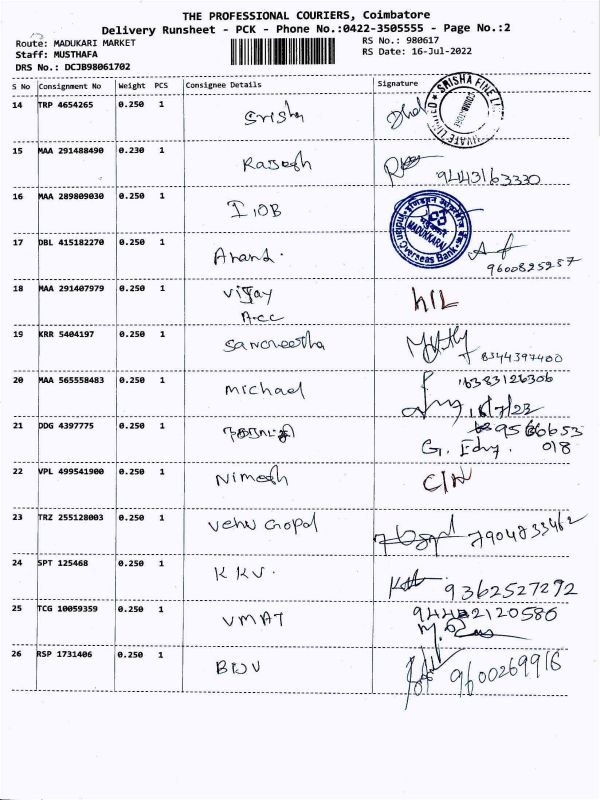 THE PROFESSIONAL COURIERS, Coimbatore
Delivery Runsheet - PCK - Phone No.:0422-3505555 - Page No.:2
Route: MADUKARI MARKET
RS No.: 980617
Staff: MUSTHAFA
RS Date: 16-Jul-2022
DRS No.: DCJB98061702
S No Consignment No Weight PCS Consignee Details Signature
14 TRP 4654265 0.250 1 Srisha
SRISHA FINE
15 MAA 291488490 0.230 1 Rajesh
9443163330
16 MAA 289809030 0.250 1 I.O.B
Indian Overseas Bank
MADUKKARAI
17 DBL 415182270 0.250 1 Anand.
9600825257
18 MAA 291407979 0.250 1 Vijay
Acc
19 KRR 5404197 0.250 1 Sangeetha
8344397400
20 MAA 565558483 0.250 1 Michael
6383126306
21 DDG 4397775 0.250 1
018
22 VPL 499541900 0.250 1 Nimesh
23 TRZ 255128003 0.250 1 Venu Gopal
7904833462
24 SPT 125468 0.250 1 KKV.
9362527272
25 TCG 10059359 0.250 1 VMAT
9442120586
26 RSP 1731406 0.250 1
9600269916